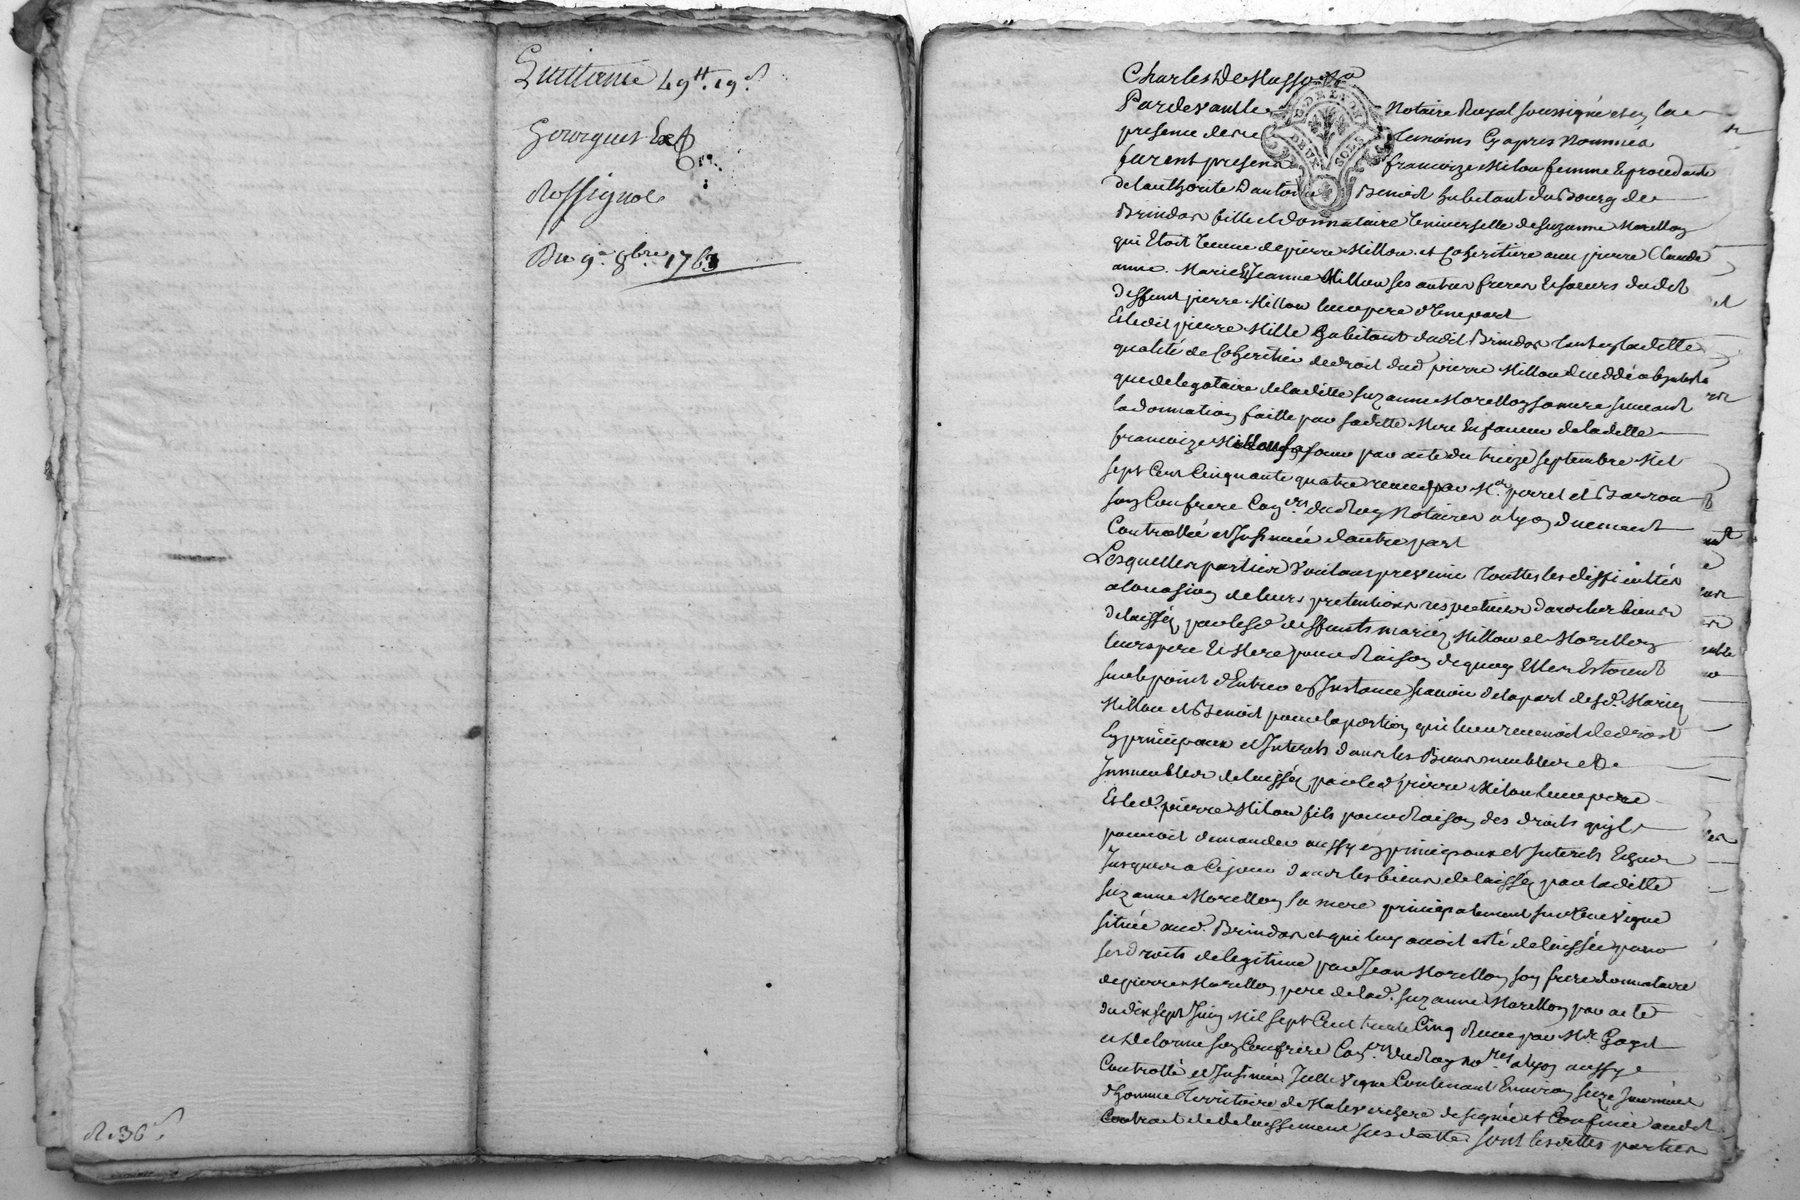 Quittance 49ᵗᵗ. 19ˢ
Gourgues
Rossignol
Du 9ᵉ 8bre 1763
R. 36ˢ.
Charles De Masso
Pardevant le Notaire Royal soussigné et en la
presence de temoins cy apres Nommés
furent presens francoize Milou femme et procedante
de l'authorité d'antoine Benoit habitant du Bourg de
Brindas fille et donnataire universelle de Suzanne Morellon
qui Etoit veuve de pierre Millou et coheritiere avec pierre Claude
anne Marie et Jeanne Millou ses autres freres et soeurs dudit
deffunt pierre Millou leur pere d'une part
Et ledit pierre Mille habitant dudit Brindas tant en laditte
qualité de coheritier de droit dud pierre Millou
que de legataire de laditte Suzanne Morellon sa mere suivant
la donnation faitte par saditte Mere En faveur de laditte
francoize Millou sa soeur par acte du treize septembre Mil
sept Cent Cinquante quatre receu par Mᵉ perret et Barrou
son Confrere Conʳˢ du Roy Notaires a lyon duement
Controllée et Insinuée d'autre part
Lesquelles parties voulant prevenir touttes les difficultés
a l'ocasion de leurs pretentions respectives dans les biens
delaissés par lesd deffunts mariés Millou et Morellon
leurs pere Et Mere pour Raison de quoy Elles Estoient
sur le point d'Entrer en Instance scavoir de la part desd. Mariés
Millou et Benoit pour la portion qui leur revenoit de droit
En principaux et Interets dans les Biens meubles et
Immeubles delaissés par led pierre Milou leur pere
Et led. pierre Milou fils pour Raison des droits qu'il
pouvoit demander aussy en principaux et Interets Echus
Jusques a Ce jour dans les biens delaissés par laditte
Suzanne Morellon sa mere principalement sur une vigne
située aud. Brindas et qui luy avoit esté delaissée pour
ses droits de legitime par Jean Morellon son frere donnataire
de pierre Morellon pere de lad. Suzanne Morellon par acte
du dix sept Juin Mil sept Cent trente Cinq Receu par Mᵉ
et Delorme son Confrere Conʳˢ du Roy noʳᵉˢ a lyon aussy
Controllé et Insinué Icelle vigne Contenant Environ seize Journées
d'homme Territoire de designée et Confinée audit
Contrat de delaissement sur lesdittes sont lesdittes parties